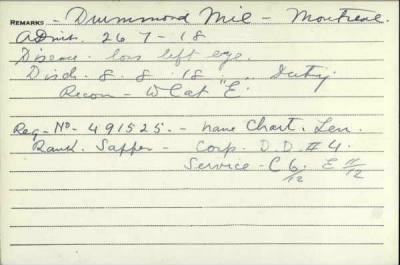 REMARKS - Drummond Mil - Montreal.
Admit. 26 7 - 18
Disease - loss left eye.
Disch. 8. 8. 18. .. Duty
Recom - W Cat "E"
Reg - No - 491525. - name Chart. Len.
Rank. Sapper - Corp. D.D. #4.
Service - C 6/12 E 11/12